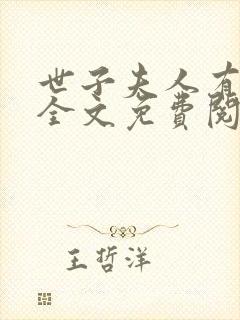 世子夫人有
全文免費閱
王哲洋